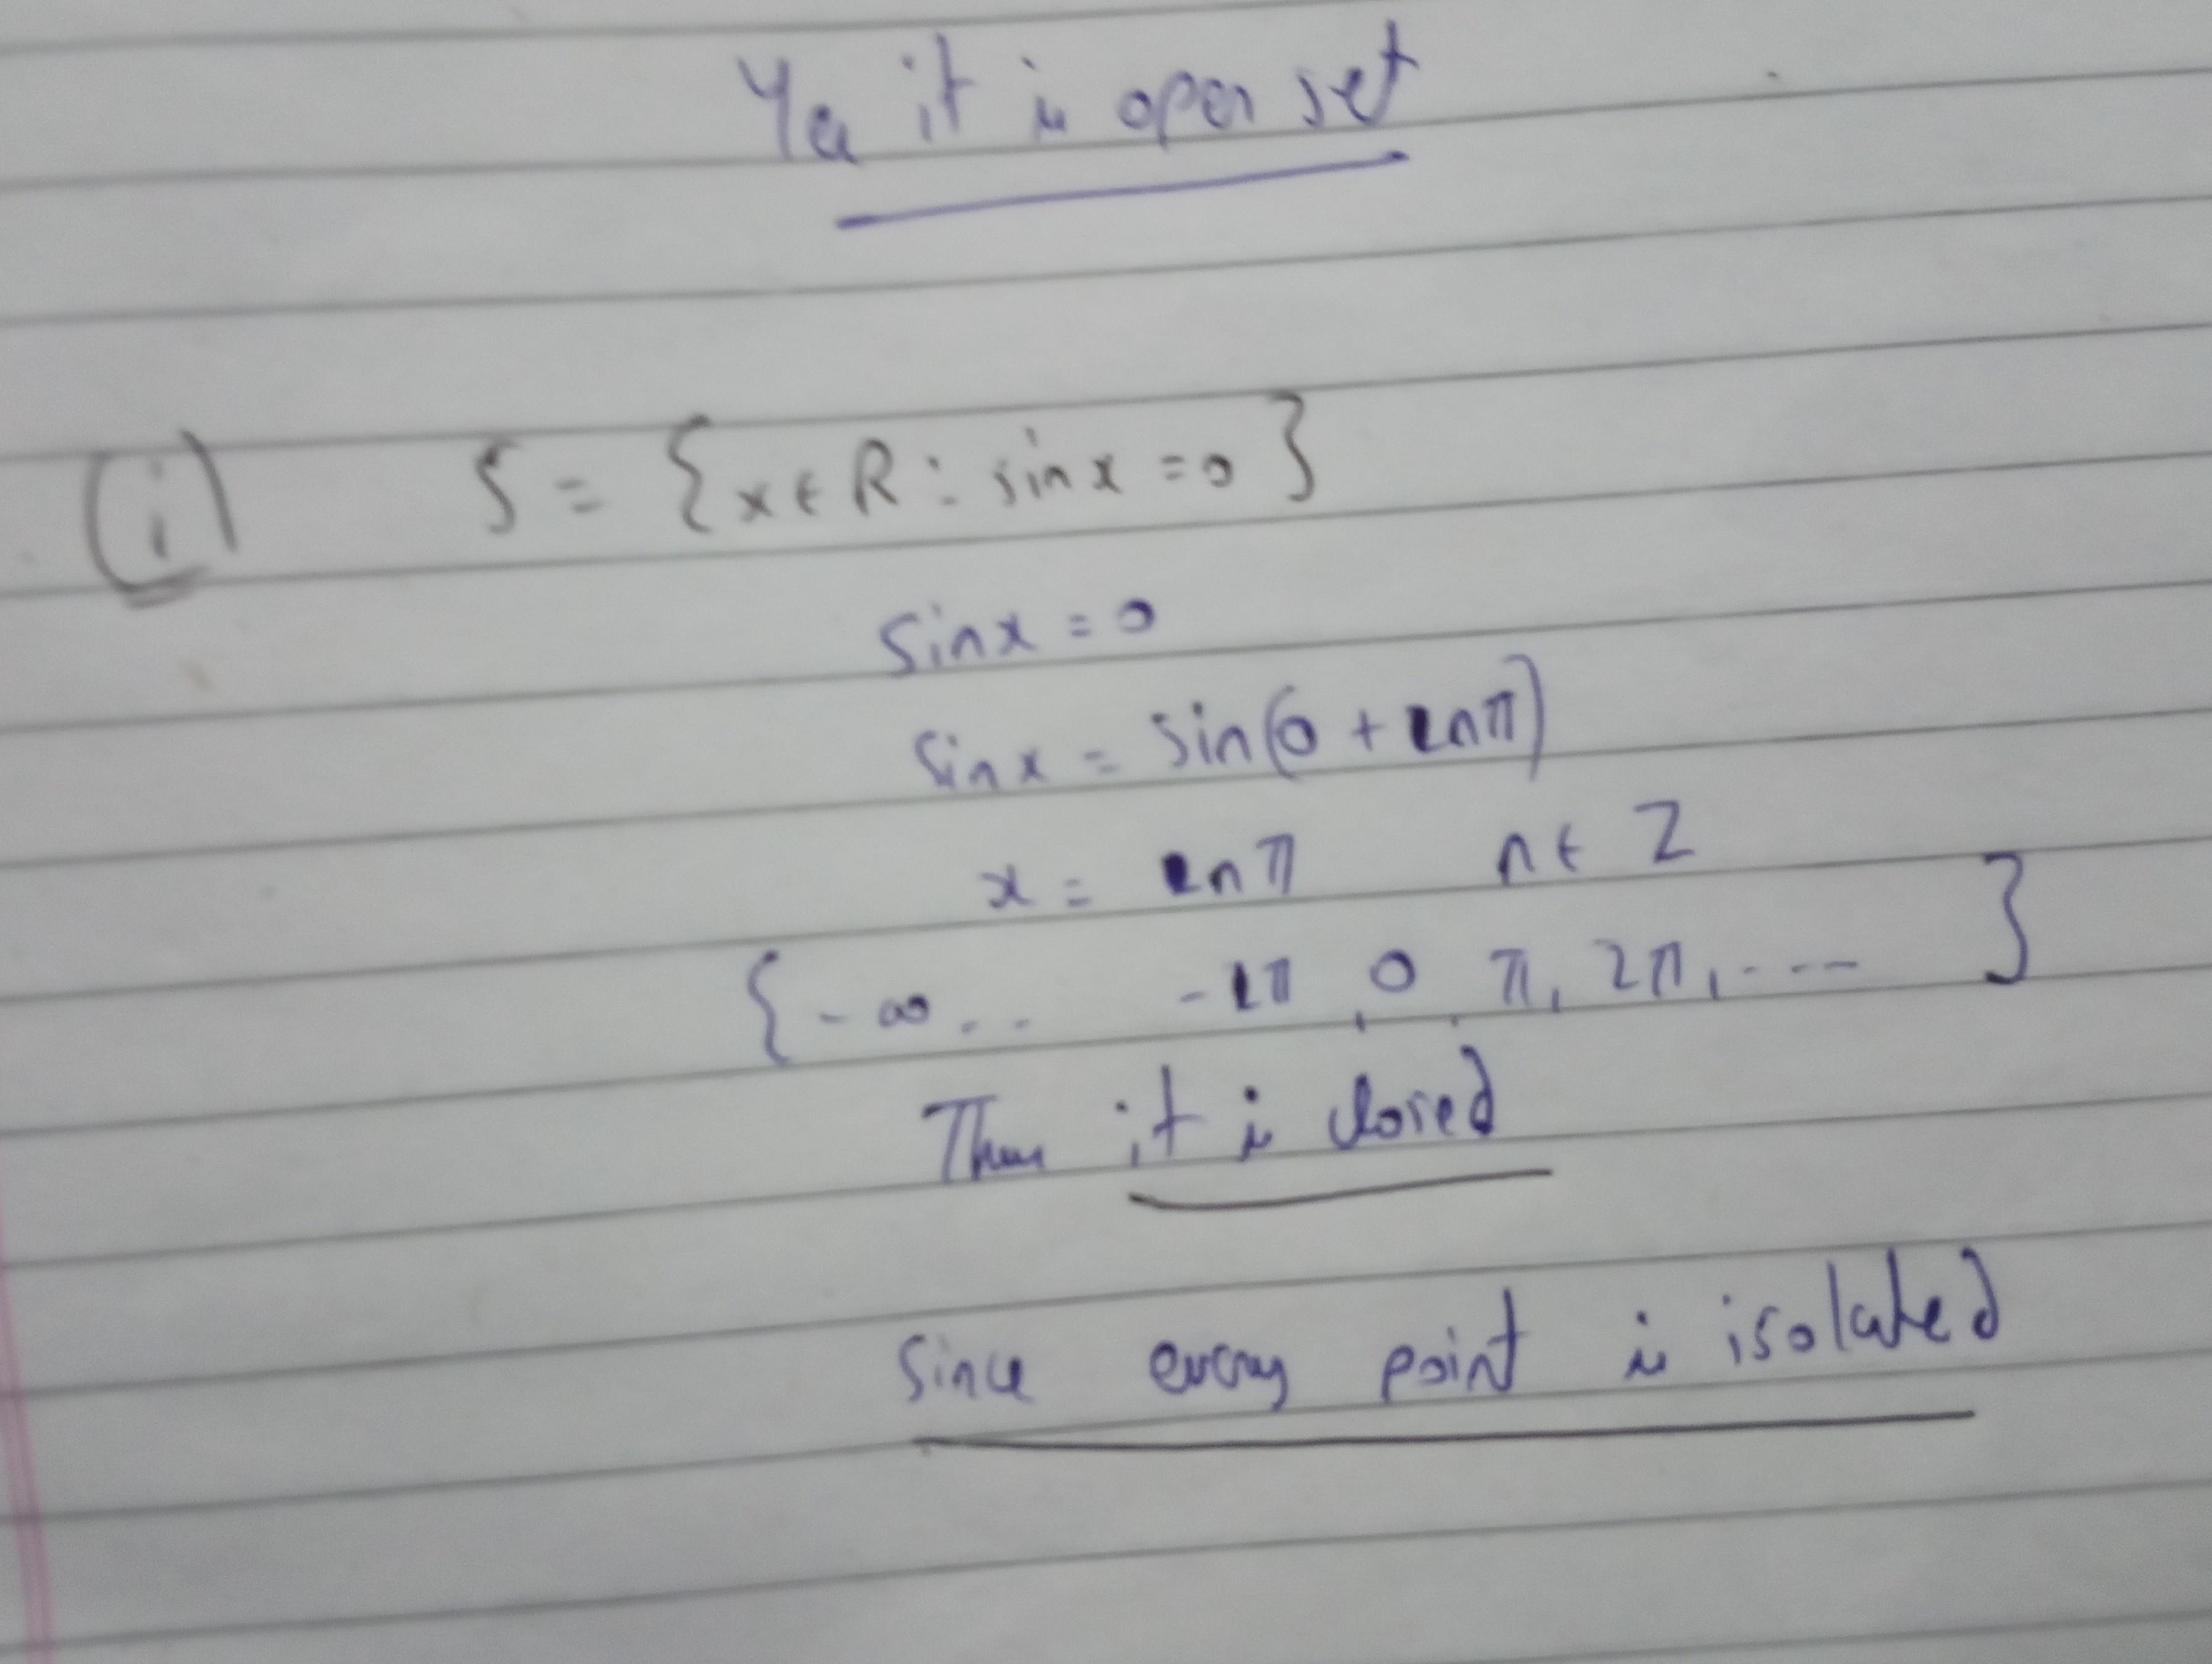 Yes it is open set
(i) S = {x ∈ R : sin x = 0}
Sin x = 0
Sin x = Sin(0 + nπ)
x = nπ n ∈ Z
{-∞ .. -1π, 0, π, 2π, ---- }
Then it is closed
Since every point is isolated